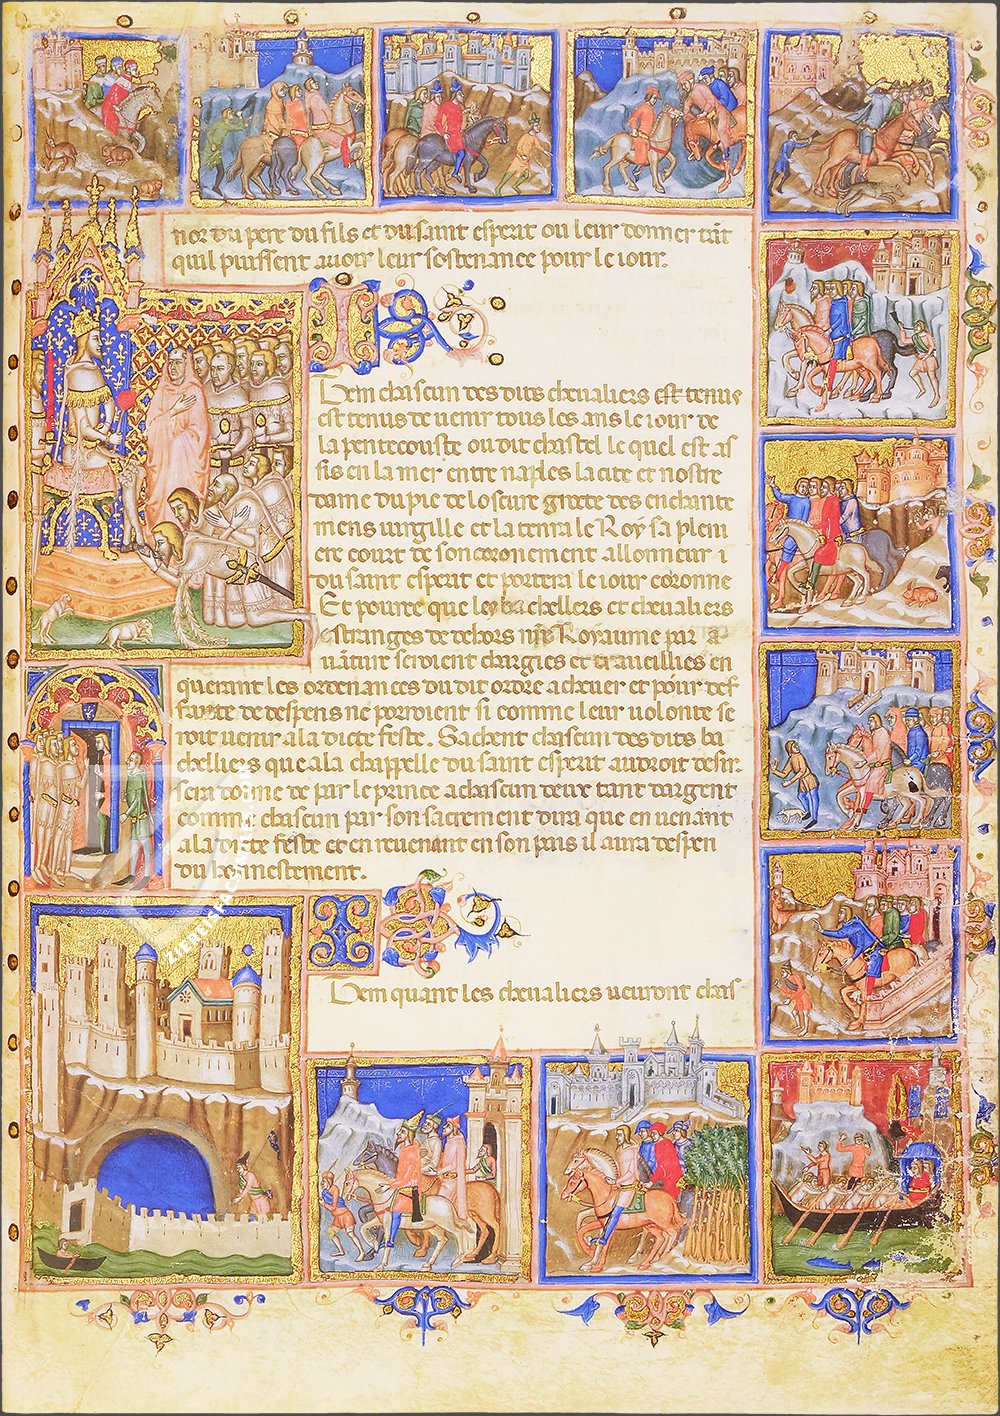 nor du pere du fils et du saint esperit ou leur donner tāt
quil puissent avoir leur sostenance pour le iour.
Item chascun des dits chevaliers est tenue
est tenus de venir tous les ans le iour de
la pentecouste ou dit chastel le quel est as
sis en la mer entre naples la cite et nostre
dame du pie de
grote des enchante
mens virgille et la tenra le Roy sa plein
ere court de son coronement a llonneur
du saint esperit et portera le iour coronne
Et pource que les bachellers et chevaliers
estranges de dehors
Royaume par
seroient chargies et traveillies en
querant les ordenances du dit ordre achever et pour def
faute de despens ne porroient si comme leur volonte se
roit venir a la dicte feste. Sachent chascun des dits ba
chelliers que a la chappelle du saint esperit
sera donne de par le prince a chascun deux tant dargent
comme chascun par son sacrement dira que en venant
a la dicte feste et en revenant en son pais il aura despen
du honnestement.
Item quant les chevaliers venront chas
ZIEREIS FACSIMILES